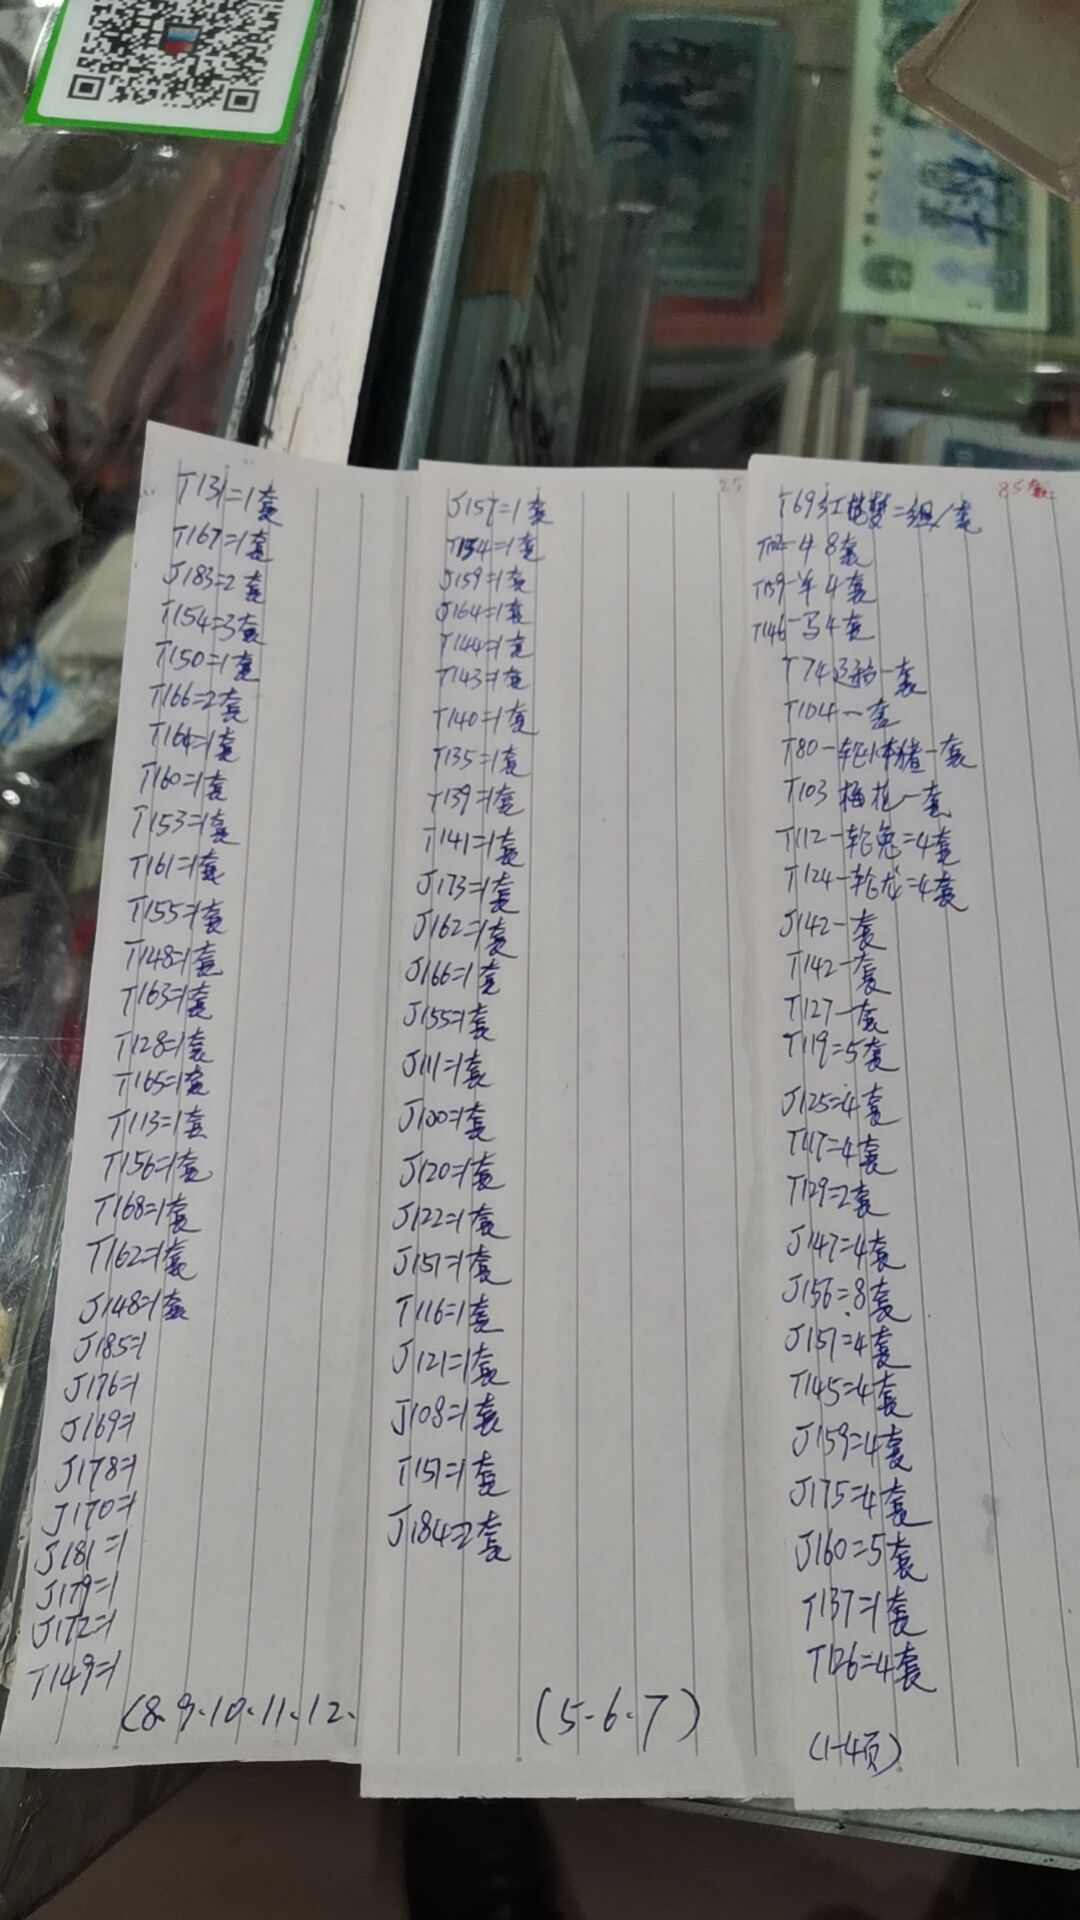 T131=1套
T167=1套
J183=2套
T154=3套
T150=1套
T166=2套
T164=1套
T160=1套
T153=1套
T161=1套
T155=1套
T148=1套
T163=1套
T128=1套
T165=1套
T113=1套
T156=1套
T168=1套
T162=1套
J148=1套
J185=1
J176=1
J169=1
J178=1
J170=1
J181=1
J179=1
J172=1
T149=1
(8.9.10.11.12.
25
J157=1套
T134=1套
J159=1套
J164=1套
T144=1套
T143=1套
T140=1套
T135=1套
T139=1套
T141=1套
J173=1套
J162=1套
J166=1套
J155=1套
J111=1套
J100=1套
J120=1套
J122=1套
J151=1套
T116=1套
J121=1套
J108=1套
T151=1套
J184=2套
(5.6.7)
85套
T69红楼梦=组1套
8套
T159-羊4套
T146-马4套
T74 一套
T104一套
T80-轮 猪一套
T103梅花一套
T112-轮兔=4套
T124-轮龙=4套
J142一套
T142一套
T127一套
T119=5套
J125=4套
T117=4套
T129=2套
J147=4套
J156=8套
J151=4套
T145=4套
J159=4套
J175=4套
J160=5套
T137=1套
T126=4套
(1-4页)